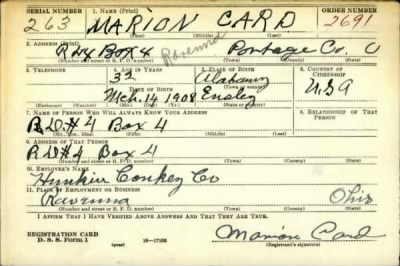 SERIAL NUMBER 1. NAME (Print) ORDER NUMBER
263 MARION CARD 2691
(First) (Middle) (Last)
2. ADDRESS (Print)
Box 4 Ravenna Portage Co. O
(Number and street or R. F. D. number) (Town) (County) (State)
3. TELEPHONE 4. AGE IN YEARS 5. PLACE OF BIRTH 6. COUNTRY OF CITIZENSHIP
32 Alabama
DATE OF BIRTH USA
Mch. 14 1908 Ensley
(Exchange) (Number) (Mo.) (Day) (Yr.) (Town or county) (State or country)
7. NAME OF PERSON WHO WILL ALWAYS KNOW YOUR ADDRESS 8. RELATIONSHIP OF THAT PERSON
R.D.#4 Box 4
(Mr., Mrs., Miss) (First) (Middle) (Last)
9. ADDRESS OF THAT PERSON
R D #4 Box 4
(Number and street or R. F. D. number) (Town) (County) (State)
10. EMPLOYER'S NAME
Hunkin Conkey Co
11. PLACE OF EMPLOYMENT OR BUSINESS
Ravenna Ohio
(Number and street or R. F. D. number) (Town) (County) (State)
I AFFIRM THAT I HAVE VERIFIED ABOVE ANSWERS AND THAT THEY ARE TRUE.
REGISTRATION CARD
D. S. S. Form 1 (over) 16—17105 Marion Card
(Registrant's signature)